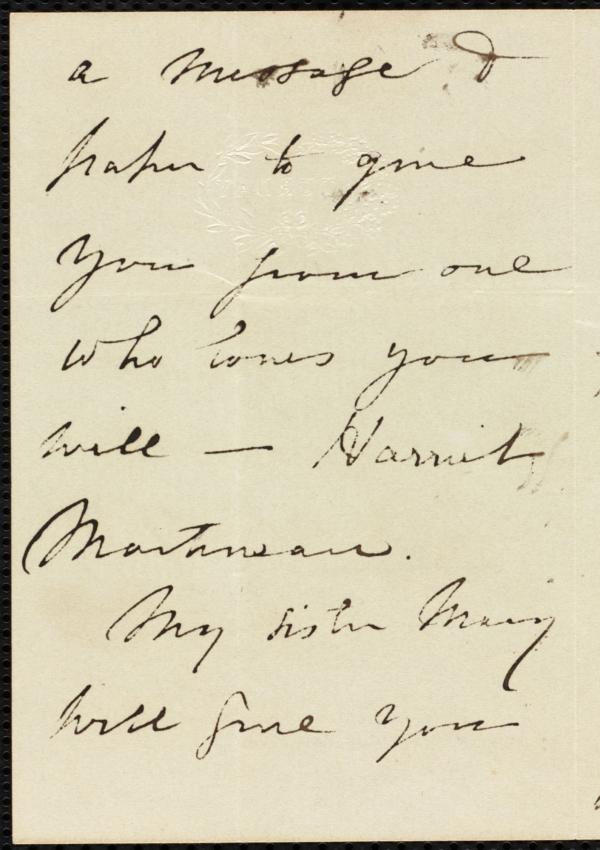 a message &
paper to give
you from one
who loves you
well — Harriet
Martineau.
My sister Mary
will give you